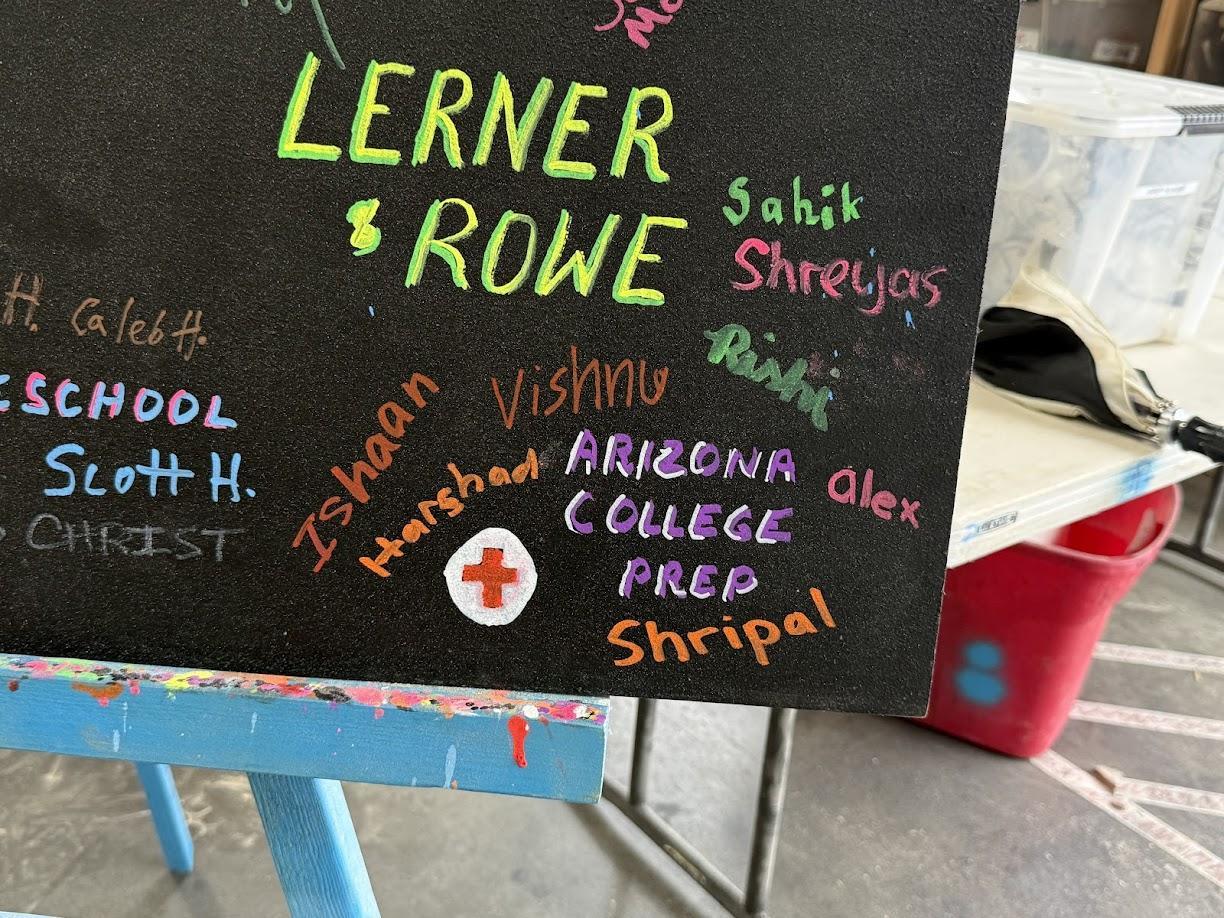 LERNER
& ROWE
Sahik
Shreyas
H. Caleb H.
Rishi
Vishnu
Ishaan
SCHOOL
Harshad
ARIZONA
COLLEGE
PREP
alex
Scott H.
CHRIST
Shripal